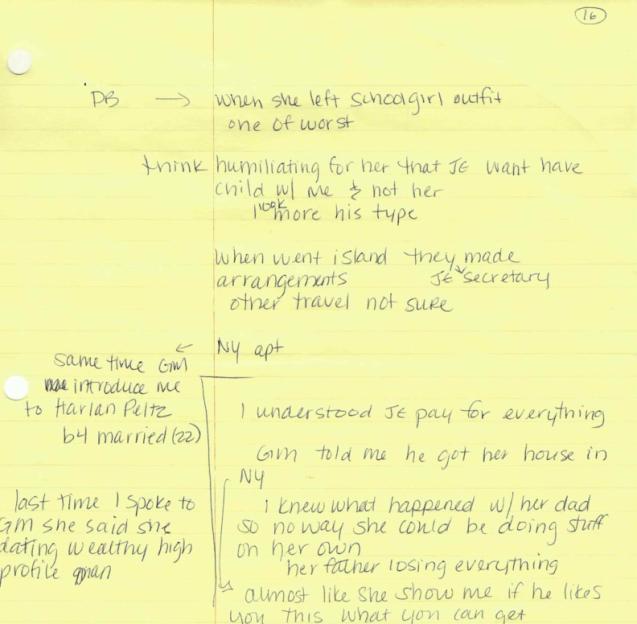 16
DB → when she left schoolgirl outfit
one of worst
think humiliating for her that JE want have
child w/ me & not her
look more his type
when went island they made
arrangements JE secretary
other travel not sure
NY apt
same time GM
introduce me
to Harlan Peltz
b4 married (22)
I understood JE pay for everything
GM told me he got her house in
NY
last time I spoke to
GM she said she
dating wealthy high
profile man
I knew what happened w/ her dad
so no way she could be doing stuff
on her own
her father losing everything
almost like she show me if he likes
you this what you can get